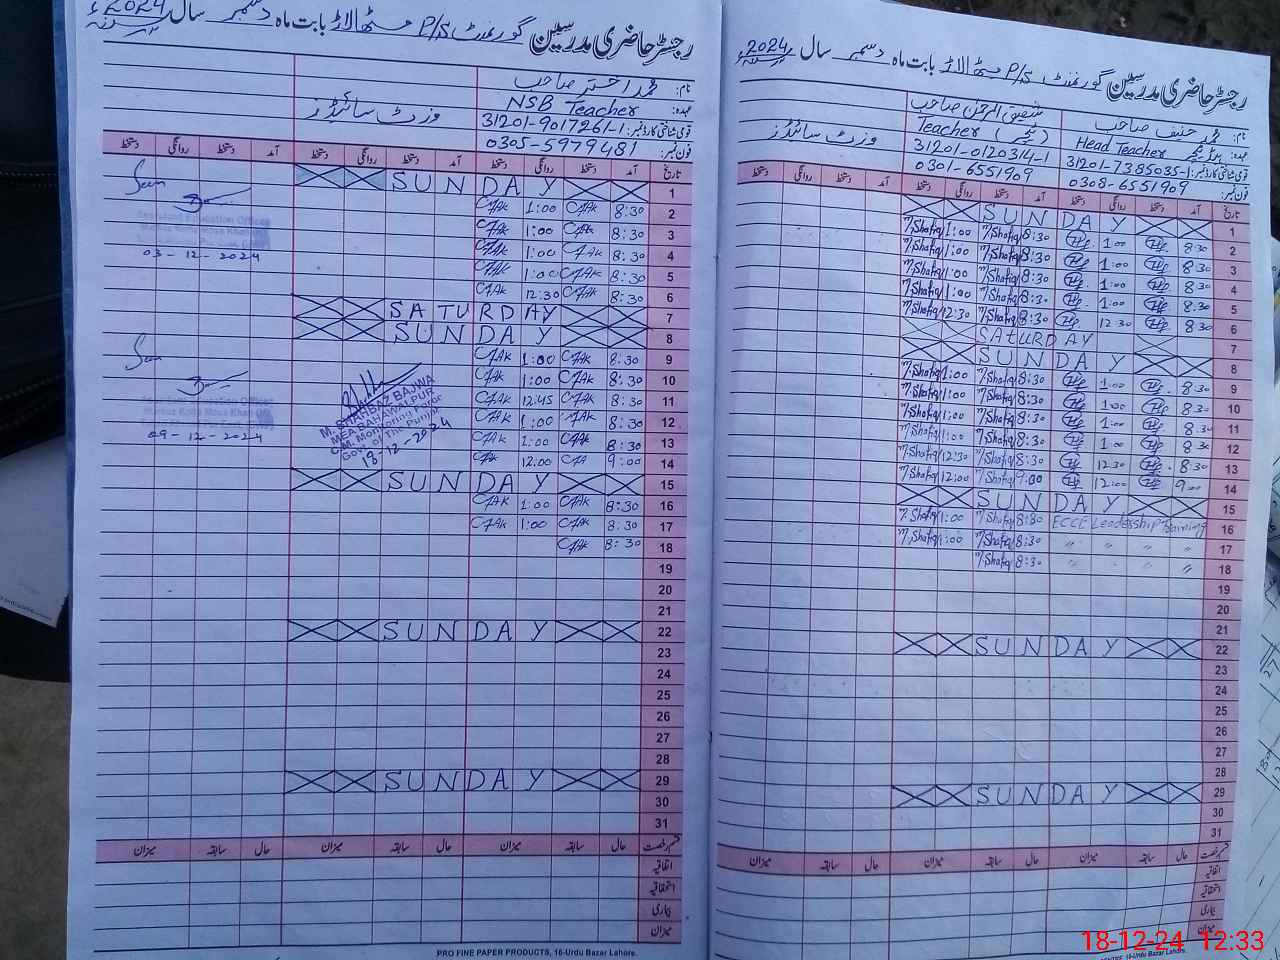 رجسٹر حاضری مدرسین گورنمنٹ P/S مٹھا لاڑ بابت ماہ دسمبر سال 2024ء
نام: محمد حنیف صاحب
صاحب
عہدہ: ہیڈ ٹیچر Head Teacher
Teacher (ٹیچر)
وزٹ سائیڈز
قومی شناختی کارڈ نمبر: 31201-7385035-1
31201-0120314-1
فون نمبر: 0308-6551909
0301-6551909
تاریخ آمد دستخط روانگی دستخط آمد دستخط روانگی دستخط آمد دستخط روانگی دستخط
1 SUNDAY
2 8:30 1:00 8:30 M.Shafiq 1:00 M.Shafiq
3 8:30 1:00 8:30 M.Shafiq 1:00 M.Shafiq
4 8:30 1:00 8:30 M.Shafiq 1:00 M.Shafiq
5 8:30 1:00 8:30 M.Shafiq 1:00 M.Shafiq
6 8:30 12:30 8:30 M.Shafiq 12:30 M.Shafiq
7 SATURDAY
8 SUNDAY
9 8:30 1:00 8:30 M.Shafiq 1:00 M.Shafiq
10 8:30 1:00 8:30 M.Shafiq 1:00 M.Shafiq
11 8:30 1:00 8:30 M.Shafiq 1:00 M.Shafiq
12 8:30 1:00 8:30 M.Shafiq 1:00 M.Shafiq
13 8:30 12:30 8:30 M.Shafiq 12:30 M.Shafiq
14 9:00 12:00 9:00 M.Shafiq 12:00 M.Shafiq
15 SUNDAY
16 ECCE Leadership Training 8:30 M.Shafiq 1:00 M.Shafiq
17 " " " " 8:30 M.Shafiq 1:00 M.Shafiq
18 " " " " 8:30 M.Shafiq
19
20
21
22 SUNDAY
23
24
25
26
27
28
29 SUNDAY
30
31
قسم رخصت حال سابقہ میزان حال سابقہ میزان حال سابقہ میزان
اتفاقیہ
استحقاقیہ
بیماری
میزان
Urdu Bazar Lahore.
رجسٹر حاضری مدرسین گورنمنٹ P/S مٹھا لاڑ بابت ماہ دسمبر سال 2024ء
نام: محمد اختر صاحب
عہدہ: NSB Teacher
وزٹ سائیڈز
قومی شناختی کارڈ نمبر: 31201-9017261-1
فون نمبر: 0305-5979481
تاریخ آمد دستخط روانگی دستخط آمد دستخط روانگی دستخط آمد دستخط روانگی دستخط
1 SUNDAY
2 8:30 1:00
3 8:30 1:00
4 8:30 1:00
5 8:30 1:00
6 8:30 12:30
7 SATURDAY
8 SUNDAY
9 8:30 1:00
10 8:30 1:00
11 8:30 12:45
12 8:30 1:00
13 8:30 1:00
14 9:00 12:00
15 SUNDAY
16 8:30 1:00
17 8:30 1:00
18 8:30
19
20
21
22 SUNDAY
23
24
25
26
27
28
29 SUNDAY
30
31
Seen
Assistant Education Officer
03-12-2024
Seen
Assistant Education Officer
Markaz Kotla Musa Khan
09-12-2024
M. SHAHBAZ BAJWA
MEA BAHAWALPUR
C.M. Monitoring Force
Govt of The Punjab
18-12-2024
قسم رخصت حال سابقہ میزان حال سابقہ میزان حال سابقہ میزان
اتفاقیہ
استحقاقیہ
بیماری
میزان
PRO FINE PAPER PRODUCTS, 16-Urdu Bazar Lahore.
18-12-24 12:33